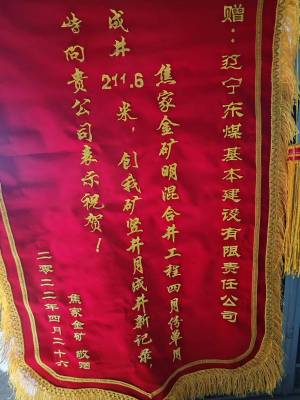 赠：辽宁东煤基本建设有限责任公司
焦家金矿明混合井工程四月份单月
成井211.6米，创我矿竖井月成井新记录，
特向贵公司表示祝贺！
焦家金矿 敬赠
二零二二年四月二十六